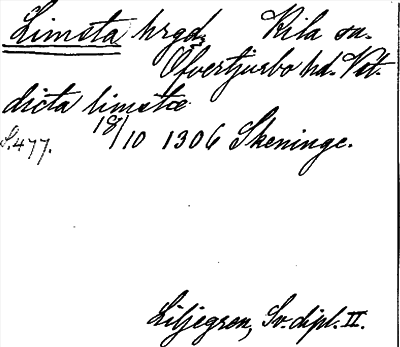 Limsta hrgd, Kila sn.
Öfvertjurbo hd. Vst.
dicta limstæ
S. 477. 18/10 1306 Skeninge.
Liljegren, Sv. dipl. II.